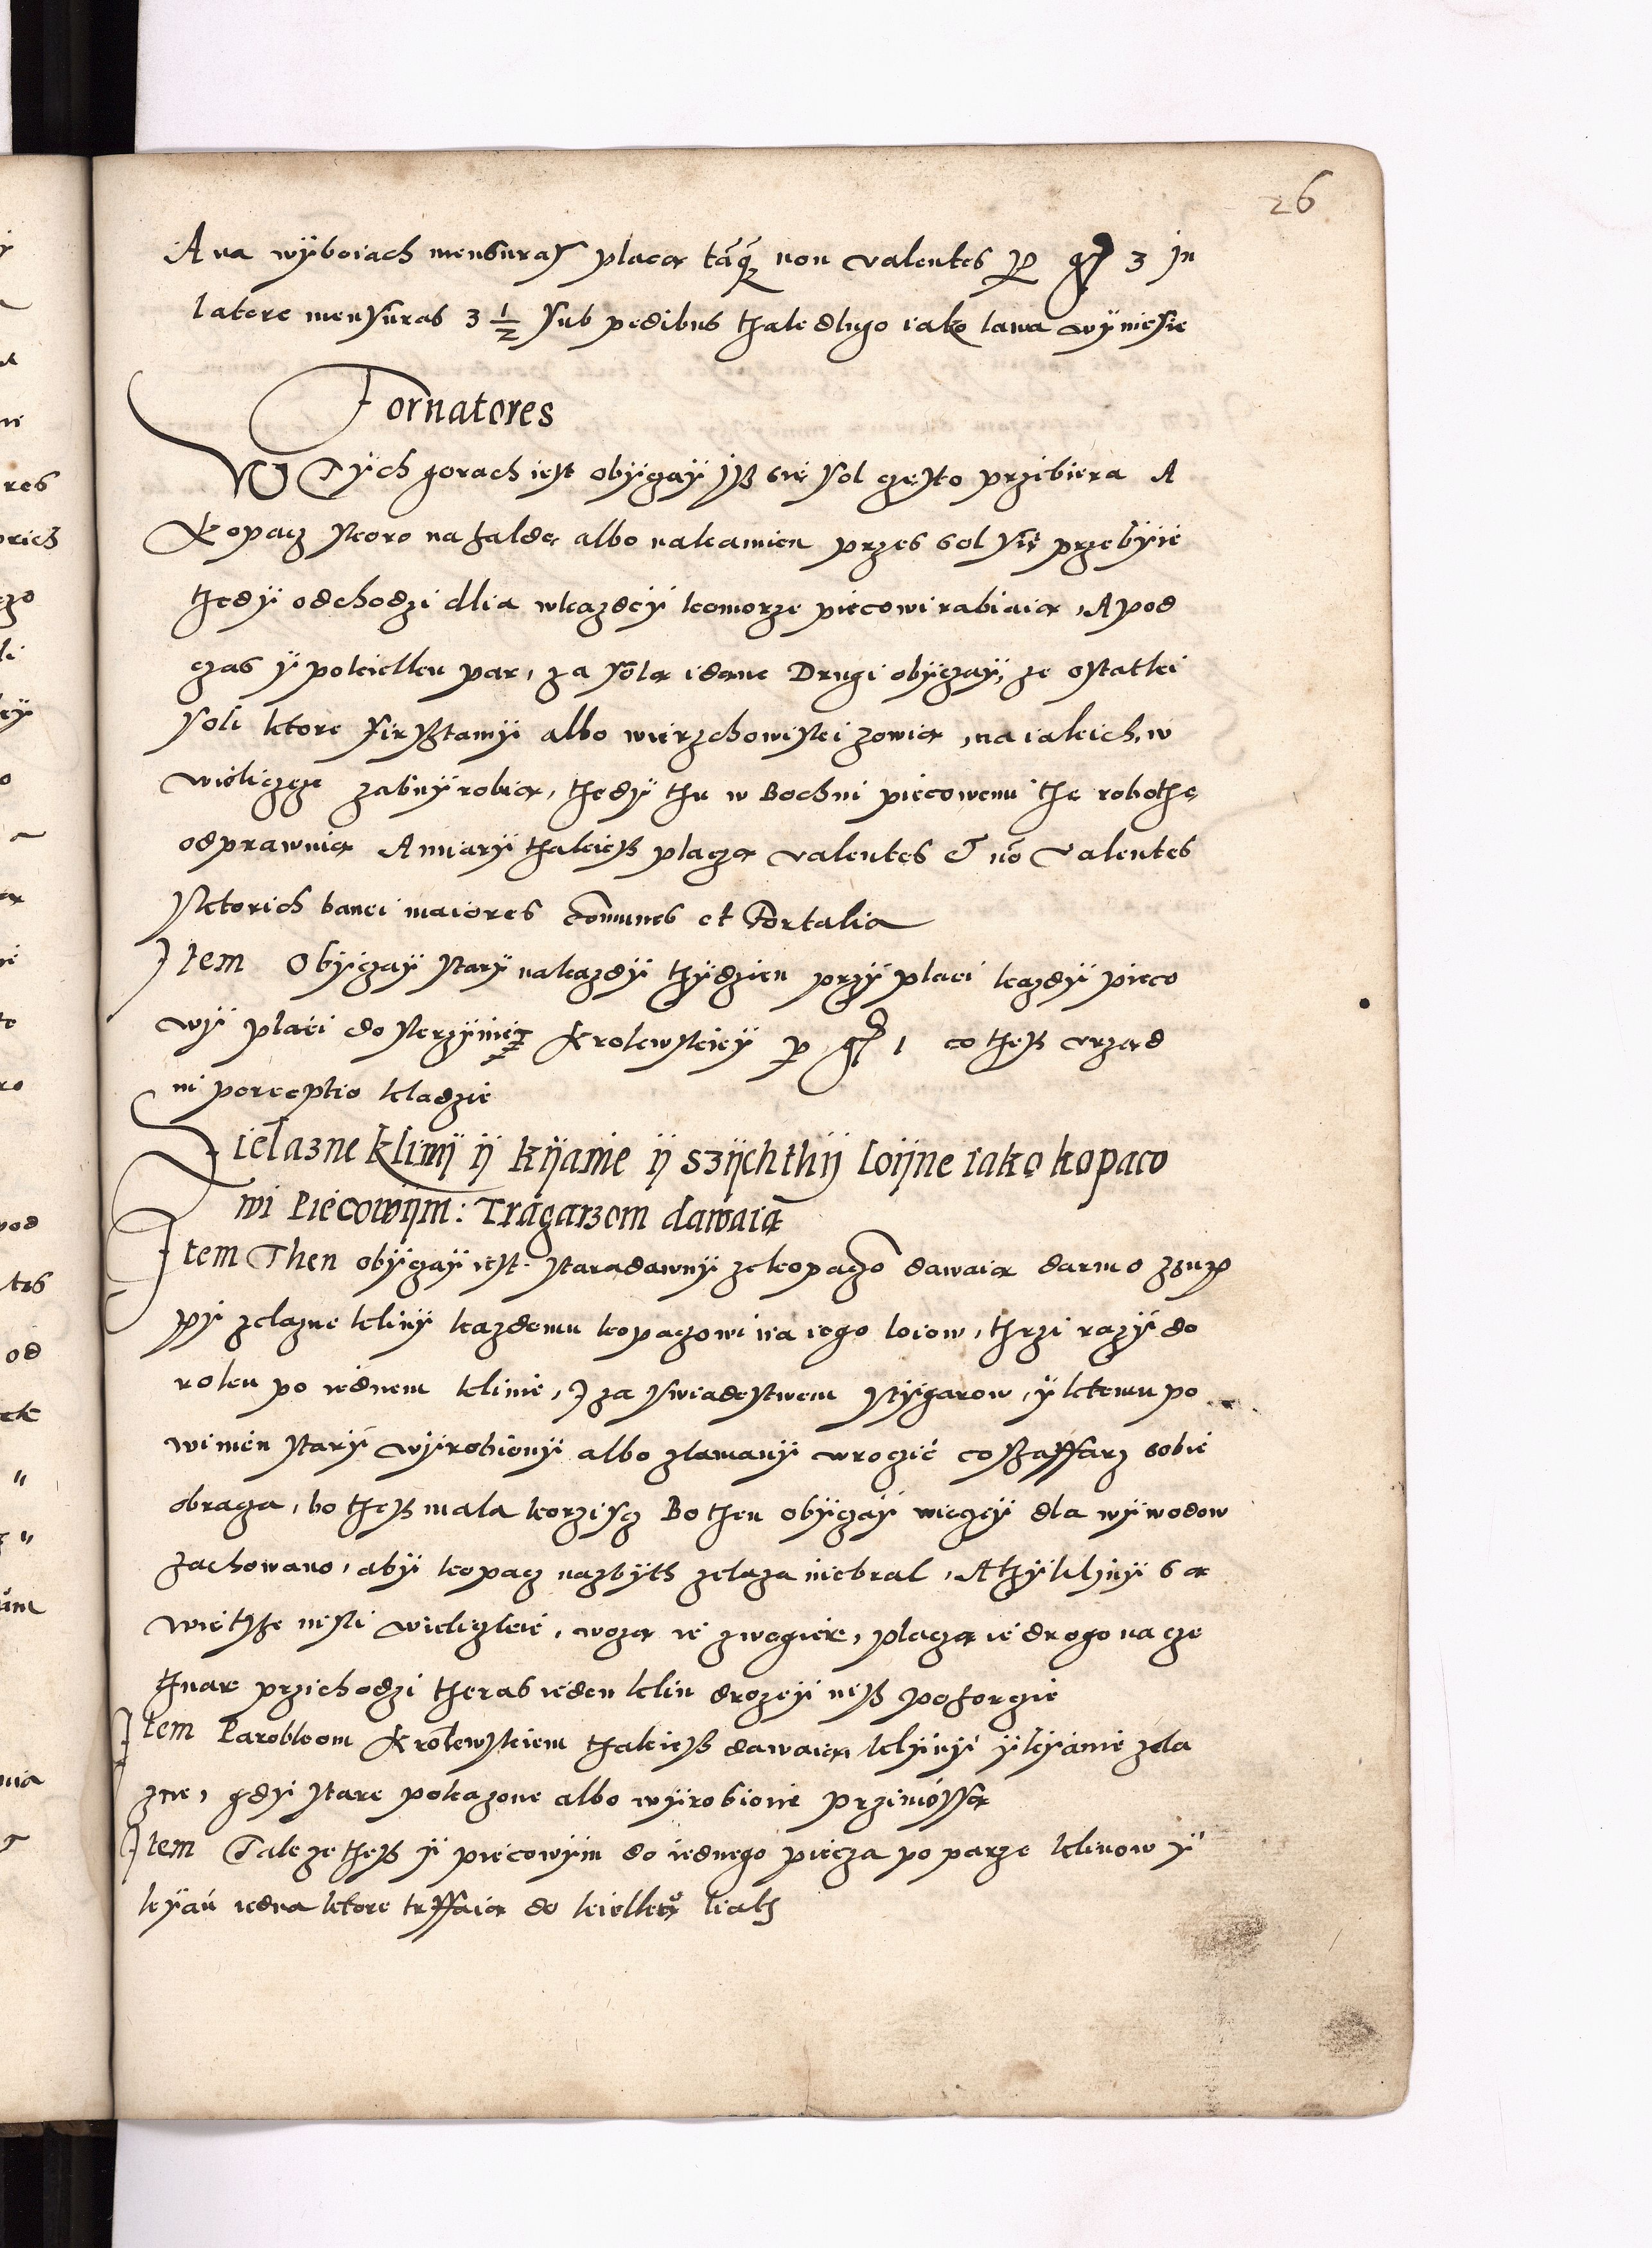 26
A na wÿboiach mensuras placą tāq₃ non valentes p gr 3 Jn
latere mensuras 3 1/2 sub pedibus thak dlugo iako lawa wÿniesie
Tornatores
W Tÿch gorach iest obÿczaÿ Jß sie sol czesto przibiera A
Kopacz skoro na halde albo nakamien przes sol sie przebÿie
thedÿ odchodzi dlia wkazdeÿ komorze piecowi rabiaią, A pod
czas ÿ pokielku par, za solą idanc Drugi obÿczaÿ, ze ostatki
soli ktore firßtamÿ albo wierzchowiski zowią, na iakich, w
wieliczcze zabnÿ robią, thedÿ thu w Bochni piecowemi the robothe
odprawuią A miarÿ thakieß placzą valentes et nō valentes
Sktorich banci maiores comunes et Fortalia
Item Obÿczaÿ starÿ nakazdÿ thÿdzien przÿ placi kazdÿ pieco
wÿ placi do skrzÿnie Krolewskieÿ p gr 1 co theß vrzad
ni perceptio kladzie
Zielazne klinÿ ÿ kÿanie ÿ szÿchthÿ loÿne iako kopaco
wi Piecowÿm: Tragarzom dawaią
Item Then obÿczaÿ iest staradawnÿ ze kopaczō dawaią darmo zzup
pÿ zelazne klinÿ kazdemu kopaczowi na iego loiow, thrzi razÿ do
roku po iednem klinie, J za swiadestwem stÿgarow, ÿ ktemu po
winien starÿ wÿrobionÿ albo zlamanÿ wrocić co ßaffarz sobie
obraca, bo theß mala korzisz Bo then obÿczaÿ wieczeÿ dla wÿwodow
zachowano, abÿ kopacz nazbÿth zelaza niebral, A thÿ klinÿ są
wietsze nisli wieliczkie, wozą ie zwegier, placzą ie drogo na cze
thwar przichodzi theras ieden klin drozeÿ niß po forcie
Item Parobkom Krolewskiem thakieß dawaią, klÿnÿ ÿ kÿanie zela
zne, gdÿ stare pokazone albo wÿrobione przinossą
Item Takze theß ÿ piecowÿm do iednego piecza po parze klinow ÿ
kÿań iedna ktore trffaią do kielku liath